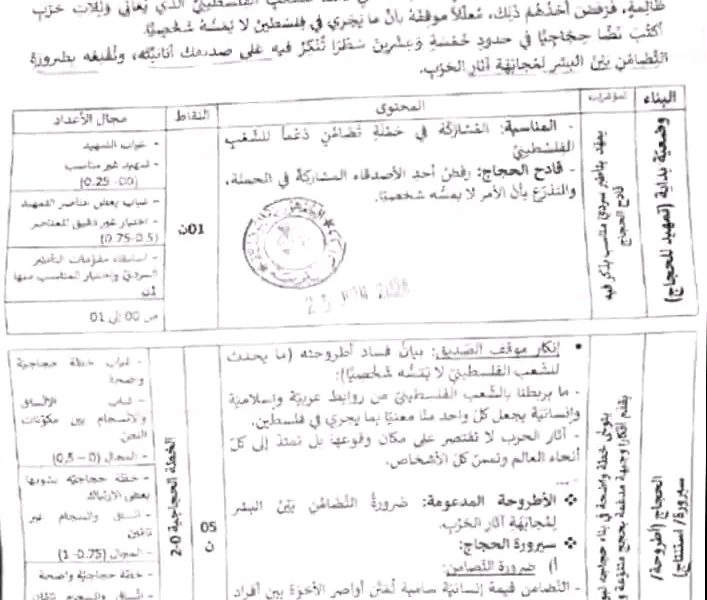 ظَالِمَةٍ، فَرَفَضَ أَحَدُهُمْ ذَلِكَ، مُعَلِّلًا مَوْقِفَهُ بِأَنَّ مَا يَجْرِي فِي فِلَسْطِينَ لَا يَمَسُّهُ شَخْصِيًّا.
اُكْتُبْ نَصًّا حِجَاجِيًّا فِي حُدُودِ خَمْسَةٍ وَعِشْرِينَ سَطْرًا تُنْكِرُ فِيهِ عَلَى صَدِيقِكَ أَنَانِيَّتَهُ، وَتُقْنِعُهُ بِضَرُورَةِ
التَّضَامُنِ بَيْنَ البَشَرِ لِمُجَابَهَةِ آثَارِ الحَرْبِ.
البناء
المحتوى
النقاط
مجال الأعداد
وضعيّة بداية (تمهيد للحجاج)
قادح الحجاج
- المناسبة: المُشَارَكَة في حَمْلَةِ تَضَامُن دَعْمًا للشَّعْبِ
الفِلَسْطِينِيِّ
- قادح الحجاج: رفض أحد الأصدقاء المشاركة في الحملة،
والتذرّع بأن الأمر لا يمسّه شخصيّا.
01ن
- غياب التمهيد
- تمهيد غير مناسب
(00-0.25)
- غياب بعض عناصر التمهيد
- اختيار غير دقيق للعناصر
(0.5-0.75)
01ن
من 00 إلى 01
الحجاج (أطروحة/
سيرورة/ استنتاج)
• إنكار موقف الصديق: بيان فساد أطروحته (ما يحدث
للشعب الفلسطيني لا يمسّه شخصيّا):
- ما يربطنا بالشّعب الفلسطينيّ من روابط عربيّة وإسلاميّة
وإنسانيّة يجعل كلّ واحد منّا معنيّا بما يجري في فلسطين.
- آثار الحرب لا تقتصر على مكان وقوعها بل تمتدّ إلى كلّ
أنحاء العالم وتمسّ كلّ الأشخاص.
....
❖ الأطروحة المدعومة: ضرورةُ التّضامُنِ بَيْنَ البشرِ
لِمُجَابَهَةِ آثارِ الحَرْبِ.
❖ سيرورة الحجاج:
أ) ضرورة التّضامن:
- التّضامن قيمة إنسانيّة سامية تُمَتِّن أواصر الأخوّة بين أفراد
05
ن
الخطة الحجاجية 0-2
- غياب خطة حجاجيّة
وضحة
- غياب الاتّساق
والانسجام بين مكوّنات
النصّ
- المجال (0-0,5)
- خطة حجاجيّة يشوبها
بعض الارتباك
- اتّساق وانسجام غير
تامّين
- المجال (0.75-1)
- خطّة حجاجيّة واضحة